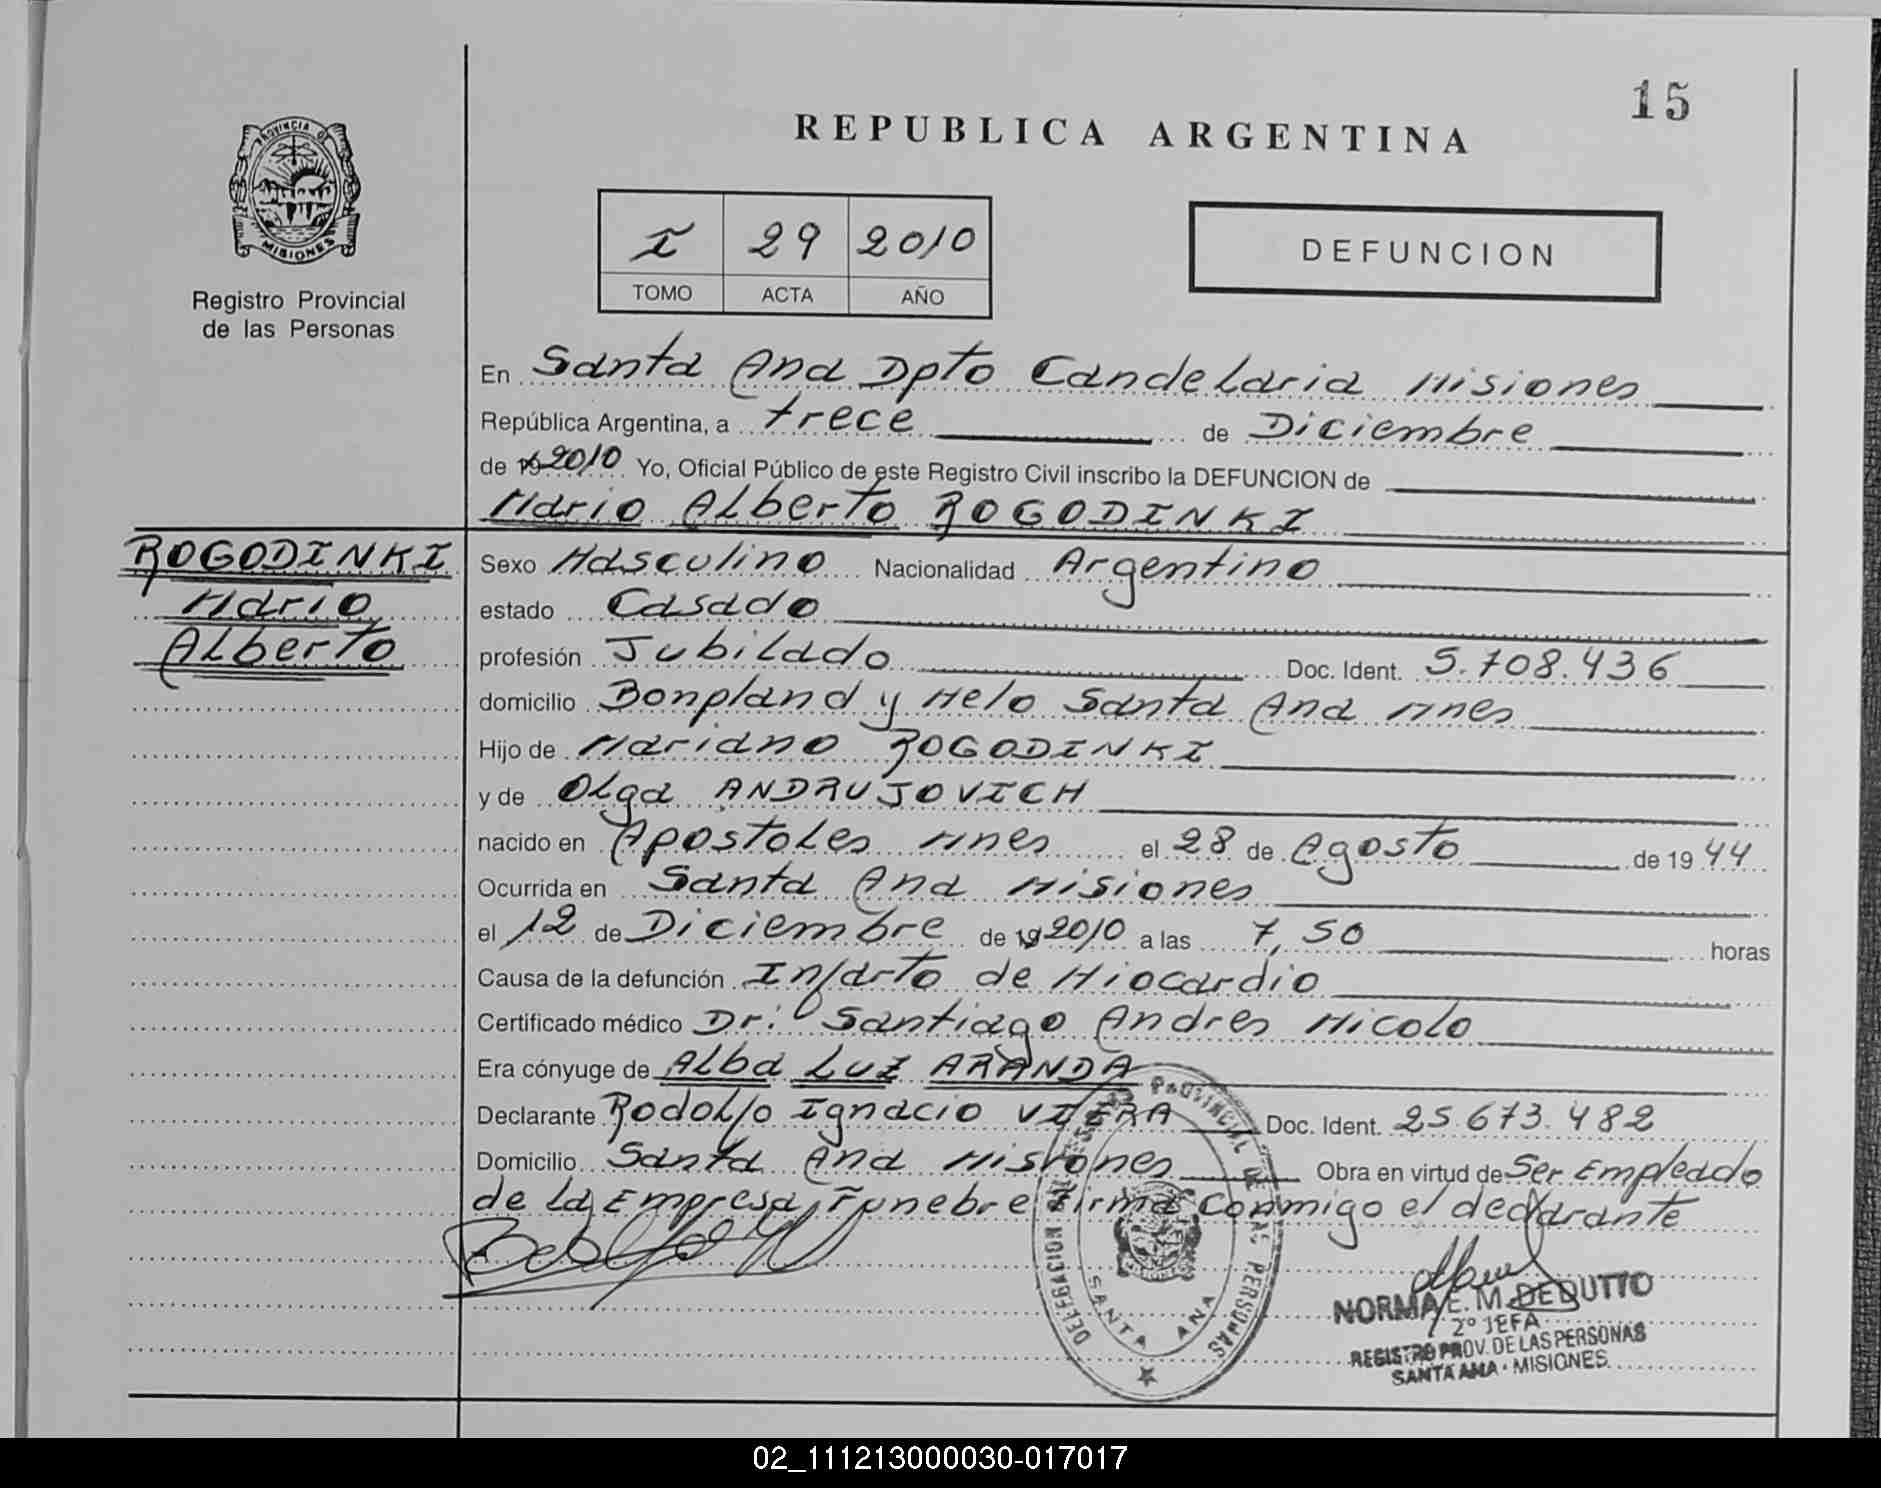 15
REPUBLICA ARGENTINA
PROVINCIA DE
MISIONES
Registro Provincial
de las Personas
I 29 2010
TOMO ACTA AÑO
DEFUNCION
En Santa Ana Dpto Candelaria Misiones
República Argentina, a trece de Diciembre
de 19 2010 Yo, Oficial Público de este Registro Civil inscribo la DEFUNCION de
Mario Alberto ROGODINKI
ROGODINKI
Mario
Alberto
Sexo Masculino Nacionalidad Argentino
estado Casado
profesión Jubilado Doc. Ident. 5.708.436
domicilio Bonpland y Melo Santa Ana Mnes
Hijo de Mariano ROGODINKI
y de Olga ANDRUJOVICH
nacido en Apostoles Mnes el 28 de Agosto de 19 44
Ocurrida en Santa Ana Misiones
el 12 de Diciembre de 19 2010 a las 7,50 horas
Causa de la defunción Infarto de Miocardio
Certificado médico Dr. Santiago Andres Micolo
Era cónyuge de Alba Luz ARANDA
Declarante Rodolfo Ignacio VIERA Doc. Ident. 25.673.482
Domicilio Santa Ana Misiones Obra en virtud de Ser Empleado
de la Empresa Funebre Firma Conmigo el declarante
DELEGACION PROVINCIAL DE LAS PERSONAS
SANTA ANA
NORMA E. M. DEDUTTO
2º JEFA
REGISTRO PROV. DE LAS PERSONAS
SANTA ANA - MISIONES
02_111213000030-017017